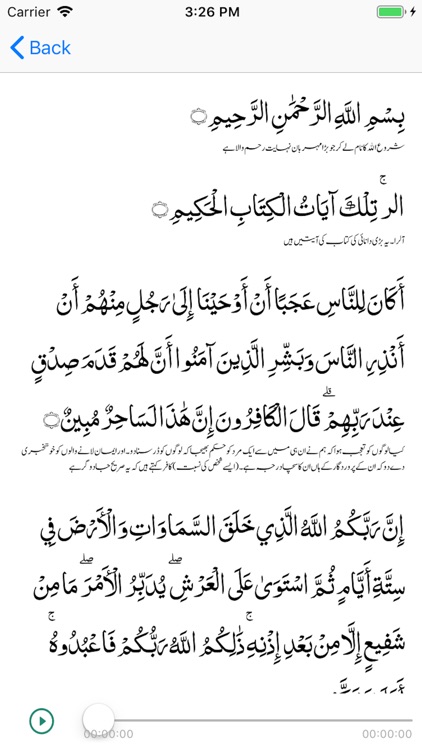 Carrier 3:26 PM
Back
بِسْمِ اللَّهِ الرَّحْمَٰنِ الرَّحِيمِ ۝
شروع الله کا نام لے کر جو بڑا مہربان نہایت رحم والا ہے
الر ۚ تِلْكَ آيَاتُ الْكِتَابِ الْحَكِيمِ ۝
آلرا ۔ یہ بڑی دانائی کی کتاب کی آیتیں ہیں
أَكَانَ لِلنَّاسِ عَجَبًا أَنْ أَوْحَيْنَا إِلَىٰ رَجُلٍ مِنْهُمْ أَنْ
أَنْذِرِ النَّاسَ وَبَشِّرِ الَّذِينَ آمَنُوا أَنَّ لَهُمْ قَدَمَ صِدْقٍ
عِنْدَ رَبِّهِمْ ۗ قَالَ الْكَافِرُونَ إِنَّ هَٰذَا لَسَاحِرٌ مُبِينٌ ۝
کیا لوگوں کو تعجب ہوا کہ ہم نے ان ہی میں سے ایک مرد کو حکم بھیجا کہ لوگوں کو ڈر سنا دو۔ اور ایمان لانے والوں کو خوشخبری
دے دو کہ ان کے پروردگار کے ہاں ان کا سچا درجہ ہے۔ (ایسے شخص کی نسبت) کافر کہتے ہیں کہ یہ صریح جادوگر ہے
إِنَّ رَبَّكُمُ اللَّهُ الَّذِي خَلَقَ السَّمَاوَاتِ وَالْأَرْضَ فِي
سِتَّةِ أَيَّامٍ ثُمَّ اسْتَوَىٰ عَلَى الْعَرْشِ ۖ يُدَبِّرُ الْأَمْرَ ۖ مَا مِنْ
شَفِيعٍ إِلَّا مِنْ بَعْدِ إِذْنِهِ ۚ ذَٰلِكُمُ اللَّهُ رَبُّكُمْ فَاعْبُدُوهُ ۚ
00:00:00 00:00:00